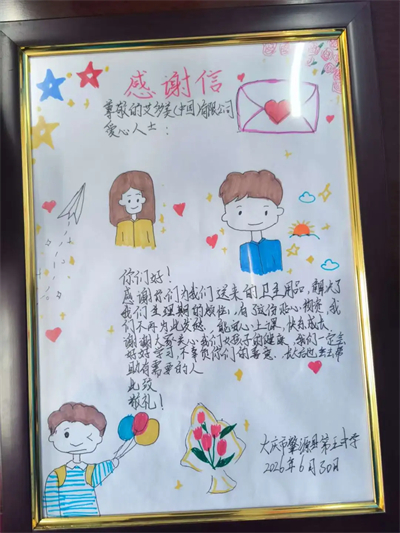 感谢信
尊敬的艾纱芙(中国)有限公司
爱心人士:
你们好!
感谢你们为我们送来的卫生用品,解决了
我们生理期的尴尬,有了这份爱心物资,我
们不再为此发愁,能安心上课,快乐成长
谢谢大哥关心我们女孩子的健康,我们一定会
好好学习,不辜负你们的善意,长大后也去帮
助有需要的人
此致
敬礼!
大庆市肇源县第五中学
2026年6月30日